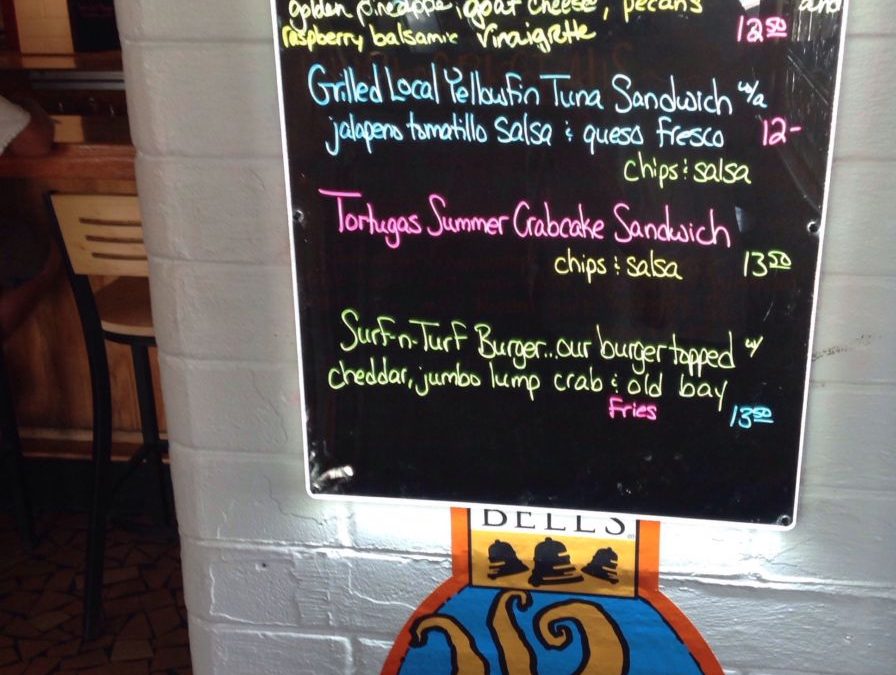 golden pineapple, goat cheese, pecans and
raspberry balsamic vinaigrette 12.50
Grilled Local Yellowfin Tuna Sandwich w/a
jalapeno tomatillo Salsa & queso fresco 12-
chips & salsa
Tortugas Summer Crabcake Sandwich
chips & salsa 13 50
Surf-n-Turf Burger...our burger topped w/
cheddar, jumbo lump crab & old bay
Fries 13 50
BELL'S